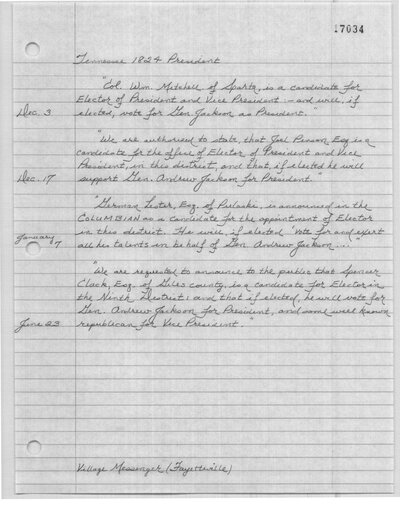 17034
Tennessee 1824 President
"Col. Wm. Mitchell of Sparta, is a candidate for
Elector of President and Vice President :- and will, if
Dec. 3 elected, vote for Gen. Jackson as President."
"We are authorised to state, that Joel Pinson Esq is a
candidate for the office of Elector of President and Vice
President, in this district, and that, if elected he will
Dec. 17 support Gen. Andrew Jackson for President."
"German Lester, Esq. of Pulaski, is announced in the
COLUMBIAN as a candidate for the appointment of Elector
in this district. He will, if elected "vote for and exert
January 7 all his talents in behalf of Gen. Andrew Jackson...."
"We are requested to announce to the public that Spencer
Clack, Esq. of Giles county, is a candidate for Elector in
the Ninth District; and that if elected, he will vote for
Gen. Andrew Jackson for President, and some well known
June 23 republican for Vice President."
Village Messenger (Fayetteville)